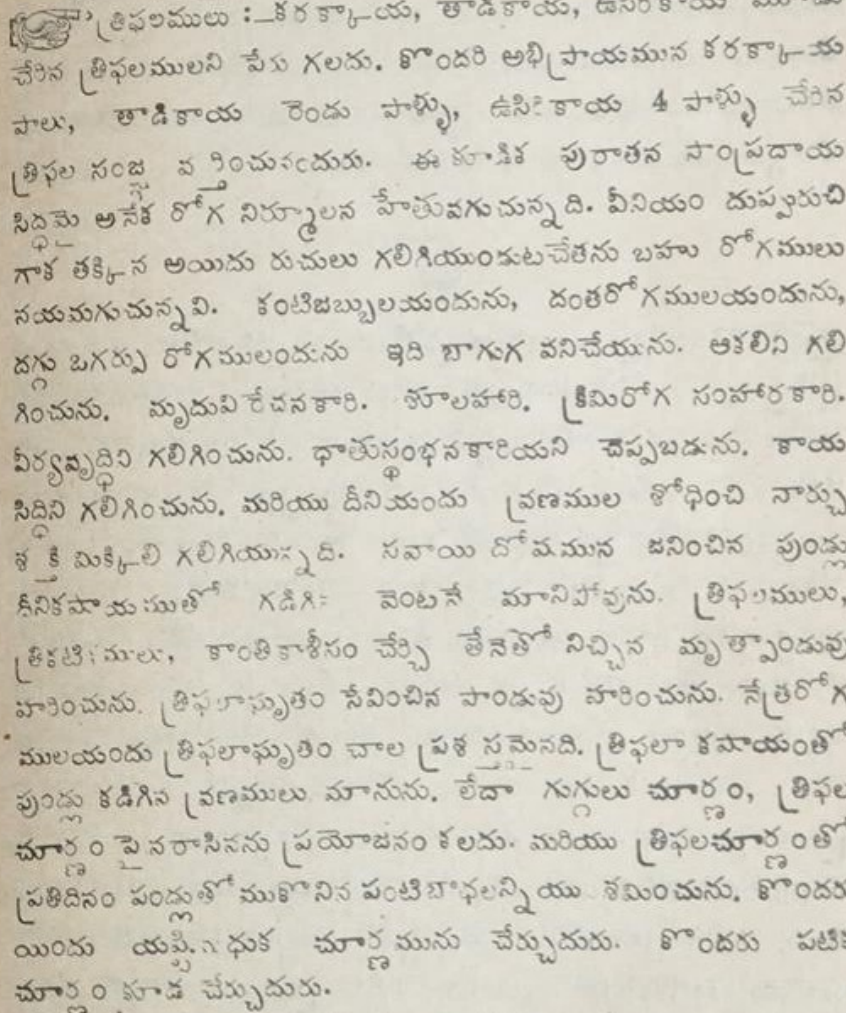 త్రిఫలములు :—కరక్కాయ, తాడికాయ, ఉసిరికాయ
చేరిన త్రిఫలములని పేరు గలదు. కొందరి అభిప్రాయమున కరక్కాయ
పాలు, తాడికాయ రెండు పాళ్ళు, ఉసిరికాయ 4 పాళ్ళు చేరిన
త్రిఫల సంజ్ఞ వర్తించునందురు. ఈ కూడిక పురాతన సాంప్రదాయ
సిద్ధమై అనేక రోగ నిర్మూలన హేతువగుచున్నది. వీనియం దుప్పురుచి
గాక తక్కిన అయిదు రుచులు గలిగియుండుటచేతను బహు రోగములు
నయమగుచున్నవి. కంటిజబ్బులయందును, దంతరోగములయందును,
దగ్గు ఒగర్పు రోగములందును ఇది బాగుగ పనిచేయును. ఆకలిని గలి
గించును. మృదువిరేచనకారి. శూలహారి. క్రిమిరోగ సంహారకారి.
వీర్యవృద్ధిని గలిగించును. ధాతుస్థంభనకారియని చెప్పబడును. కాయ
సిద్ధిని గలిగించును. మరియు దీనియందు వ్రణముల శోధించి నార్చు
శక్తి మిక్కిలి గలిగియున్నది. సవాయి దోషమున జనించిన పుండ్లు
దీనికషాయముతో గడిగిన వెంటనే మానిపోవును. త్రిఫలములు,
త్రికటుకములు, కాంతికాశీసం చేర్చి తేనెతో నిచ్చిన మృత్పాండువు
హరించును. త్రిఫలాఘృతం సేవించిన పాండువు హరించును. నేత్రరోగ
ములయందు త్రిఫలాఘృతం చాల ప్రశస్తమైనది. త్రిఫలా కషాయంతో
పుండ్లు కడిగిన వ్రణములు మానును. లేదా గుగ్గులు చూర్ణం, త్రిఫల
చూర్ణం పైనరాసినను ప్రయోజనం కలదు. మరియు త్రిఫలచూర్ణంతో
ప్రతిదినం పండ్లుతోముకొనిన పంటిబాధలన్నియు శమించును. కొందరు
యిందు యష్టిమధుక చూర్ణమును చేర్చుదురు. కొందరు పటిక
చూర్ణం కూడ చేర్చుదురు.